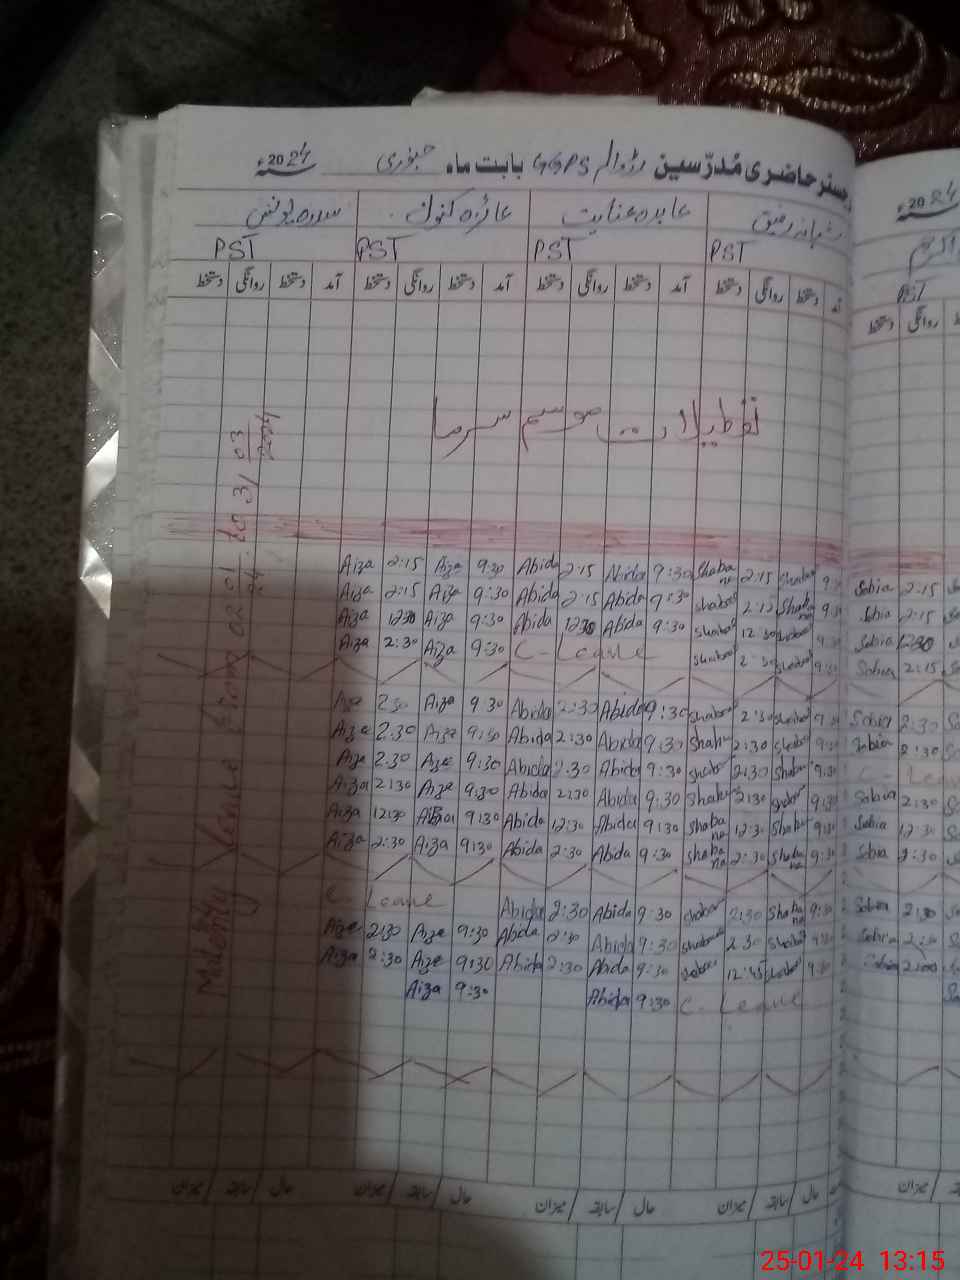 رجسٹر حاضری مُدرّسین رڈوالہ GGPS بابت ماہ جنوری 2024ء
شبانہ رفیق عابدہ عنایت عائزہ کنول سدرہ یونس
PST PST PST PST
آمد دستخط روانگی دستخط آمد دستخط روانگی دستخط آمد دستخط روانگی دستخط آمد دستخط روانگی دستخط
2024ء
PST
روانگی دستخط
تعطیلات موسم سرما
Aiza 2:15 Aiza 9:30 Abida 2:15 Abida 9:30 Shabana 2:15 Shaba Sobia 2:15
Aiza 2:15 Aiza 9:30 Abida 2:15 Abida 9:30 Shaba 2:15 Shabana Sobia 2:15
Aiza 1230 Aiza 9:30 Abida 1230 Abida 9:30 Shaba 12:30 Sobia 1230
Aiza 2:30 Aiza 9:30 C-Leave Sobia 2:15
Aiza 2:30 Aiza 9:30 Abida 2:30 Abida 9:30 Shaba 2:30 Shaba Sobia 2:30
Aiza 2:30 Aiza 9:30 Abida 2:30 Abida 9:30 Shaba 2:30 Shaba Sobia 2:30
Aiza 2:30 Aiza 9:30 Abida 2:30 Abida 9:30 Shaba 2:30 Shaba 9:30 C-Leave
Aiza 2:30 Aiza 9:30 Abida 2:30 Abida 9:30 Shaba 2:30 Shaba 9:30 Sobia 2:30
Aiza 12:30 Aiza 9:30 Abida 12:30 Abida 9:30 Shabana 12:30 Shaba 9:30 Sobia 12:30
Aiza 2:30 Aiza 9:30 Abida 2:30 Abida 9:30 Shabana 2:30 Shabana 9:30 Sobia 2:30
C-Leave Abida 2:30 Abida 9:30 Shaba 2:30 Shabana 9:30 Sobia 2:30
Aiza 2:30 Aiza 9:30 Abida 2:30 Abida 9:30 Shaba 2:30 Shaba Sobia
Aiza 2:30 Aiza 9:30 Abida 2:30 Abida 9:30 Shaba 12:45 Shaba Sobia 2:00
Aiza 9:30 Abida 9:30 C-Leave
Maternity Leave from 02 01/24 to 31 03/2024
حال / سابقہ / میزان حال / سابقہ / میزان حال / سابقہ / میزان حال / سابقہ / میزان
میزان
25-01-24 13:15